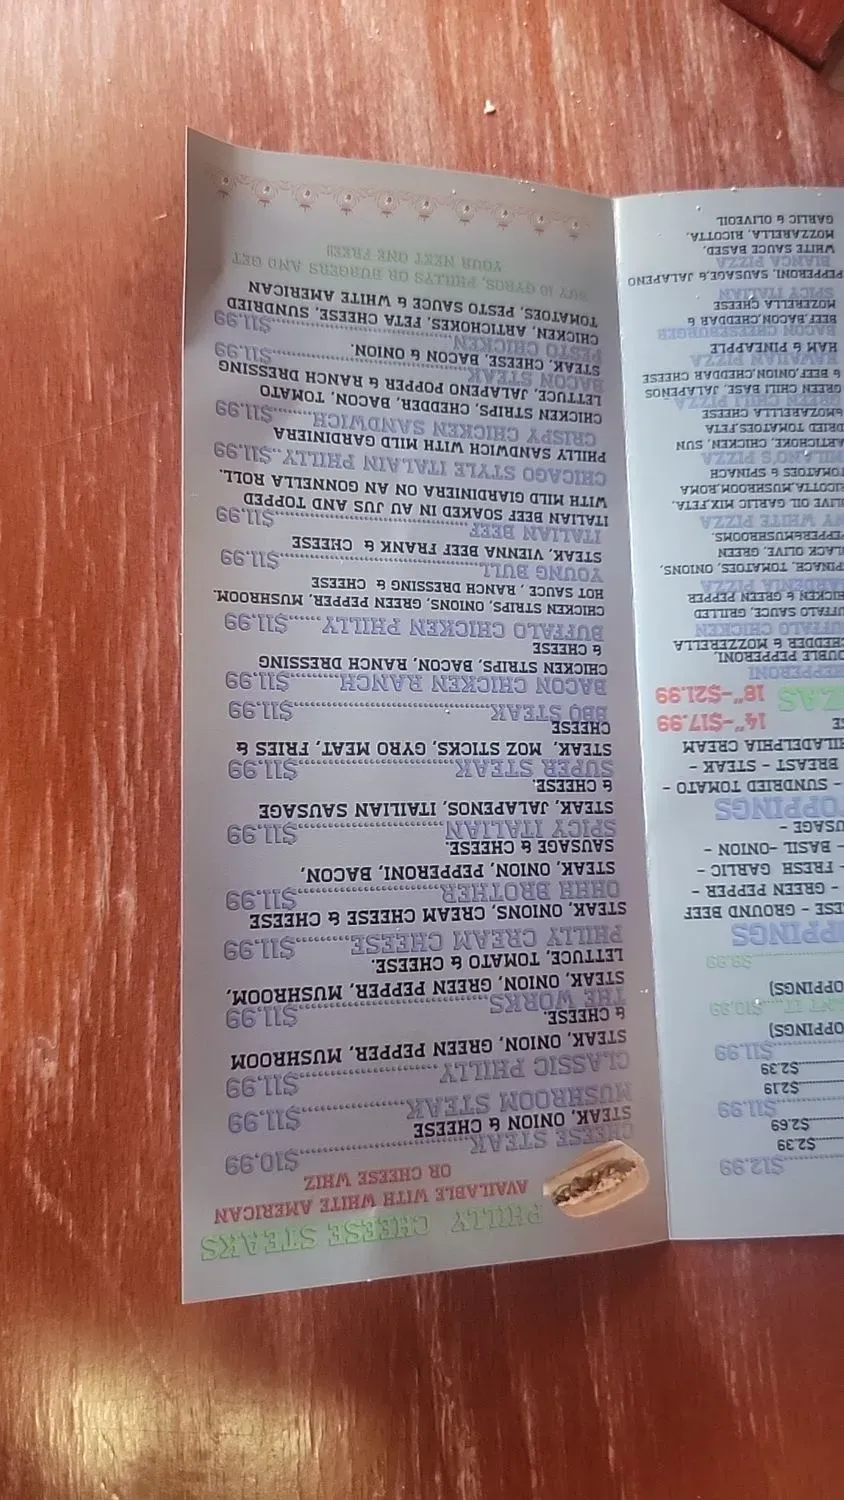 PHILLY CHEESE STEAKS
AVAILABLE WITH WHITE AMERICAN
OR CHEESE WHIZ
CHEESE STEAK..............................$10.99
STEAK, ONION & CHEESE
MUSHROOM STEAK....................$11.99
CLASSIC PHILLY..........................$11.99
STEAK, ONION, GREEN PEPPER, MUSHROOM
& CHEESE.
THE WORKS..............................$11.99
STEAK, ONION, GREEN PEPPER, MUSHROOM,
LETTUCE, TOMATO & CHEESE.
PHILLY CREAM CHEESE.........$11.99
STEAK, ONIONS, CREAM CHEESE & CHEESE
OHHH BROTHER.......................$11.99
STEAK, ONION, PEPPERONI, BACON,
SAUSAGE & CHEESE.
SPICY ITALIAN..........................$11.99
STEAK, JALAPENOS, ITAILIAN SAUSAGE
& CHEESE.
SUPER STEAK..........................$11.99
STEAK, MOZ STICKS, GYRO MEAT, FRIES &
CHEESE
BBQ STEAK..............................$11.99
BACON CHICKEN RANCH.......$11.99
CHICKEN STRIPS, BACON, RANCH DRESSING
& CHEESE
BUFFALO CHICKEN PHILLY......$11.99
CHICKEN STRIPS, ONIONS, GREEN PEPPER, MUSHROOM,
HOT SAUCE , RANCH DRESSING & CHEESE
YOUNG BULL..........................$11.99
STEAK, VIENNA BEEF FRANK & CHEESE
ITALIAN BEEF..........................$11.99
ITALIAN BEEF SOAKED IN AU JUS AND TOPPED
WITH MILD GIARDINIERA ON AN GONNELLA ROLL.
CHICAGO STYLE ITALAIN PHILLY..$11.99
PHILLY SANDWICH WITH MILD GARDINIERA
CRISPY CHICKEN SANDWICH.......$11.99
CHICKEN STRIPS, CHEDDER, BACON, TOMATO
LETTUCE, JALAPENO POPPER & RANCH DRESSING
BACON STEAK..........................$11.99
STEAK, CHEESE, BACON & ONION.
PESTO CHICKEN..........................$11.99
CHICKEN, ARTICHOKES, FETA CHEESE, SUNDRIED
TOMATOES, PESTO SAUCE & WHITE AMERICAN
BUY 10 GYROS, PHILLYS OR BURGERS AND GET
YOUR NEXT ONE FREE!!
$12.99
$2.39
$2.69
$11.99
$2.19
$2.39
$11.99
OPPINGS)
$10.99
OPPINGS)
$8.99
- GROUND BEEF
- GREEN PEPPER -
- FRESH GARLIC -
- BASIL -ONION -
- SUNDRIED TOMATO -
BREAST - STEAK -
CREAM
14"-$17.99
18"-$21.99
DOUBLE PEPPERONI,
CHEDDER & MOZZERELLA
BUFFALO CHICKEN
BUFFALO SAUCE, GRILLED
CHICKEN & GREEN PEPPER
GARDENIA PIZZA
SPINACH, TOMATOES, ONIONS,
BLACK OLIVE, GREEN
PEPPER&MUSHROOMS.
WHITE PIZZA
OLIVE OIL GARLIC MIX,FETA,
RICOTTA,MUSHROOM,ROMA
TOMATOES & SPINACH
MILANO'S PIZZA
ARTICHOKE, CHICKEN, SUN
DRIED TOMATOES,FETA
&MOZARELLA CHEESE
GREEN CHILI PIZZA
GREEN CHILI BASE, JALAPEÑOS
& BEEF,ONION,CHEDDAR CHEESE
HAWAIIAN PIZZA
HAM & PINEAPPLE
BACON CHEESEBURGER
BEEF,BACON,CHEDDAR &
MOZERELLA CHEESE
SPICY ITALIAN
PEPPERONI, SAUSAGE,& JALAPENO
BIANCA PIZZA
WHITE SAUCE BASED,
MOZZARELLA, RICOTTA,
GARLIC & OLIVEOIL